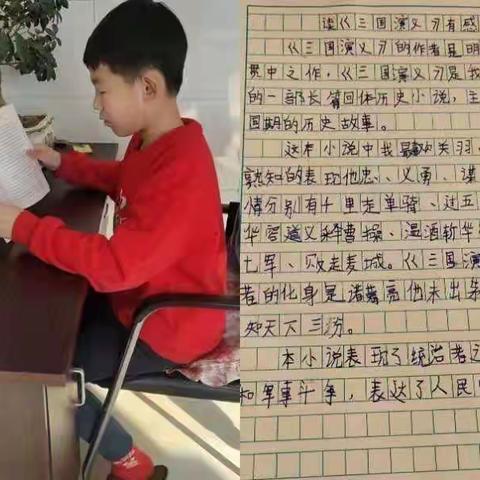 读《三国演义》有感
《三国演义》的作者是明
贯中之作,《三国演义》是我
的一部长篇回体历史小说,主
国期的历史故事。
这本小说中我最喜欢关羽。
熟知的表现他忠、义勇、谋
情分别有千里走单骑、过五
华容道义释曹操、温酒斩华
七军、败走麦城。《三国演
者的化身是诸葛亮他未出茅
知天下三汾。
本小说表现了统治者之
和军事斗争,表达了人民